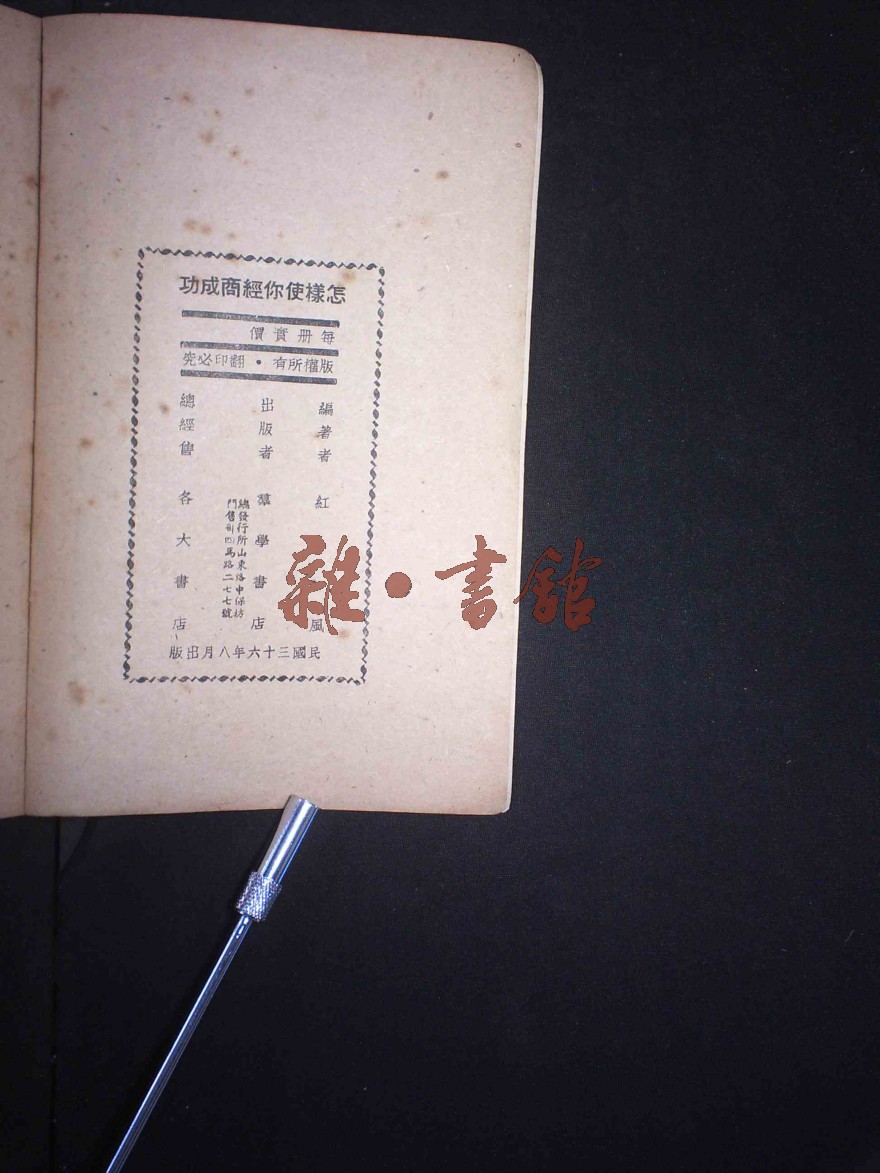 怎樣使你經商成功
每册實價
版權所有・翻印必究
編著者 紅風
出版者 羣學書店
總發行所山東路中保坊
門售部四馬路二七七號
總經售 各大書店
民國三十六年八月出版
雜・書館